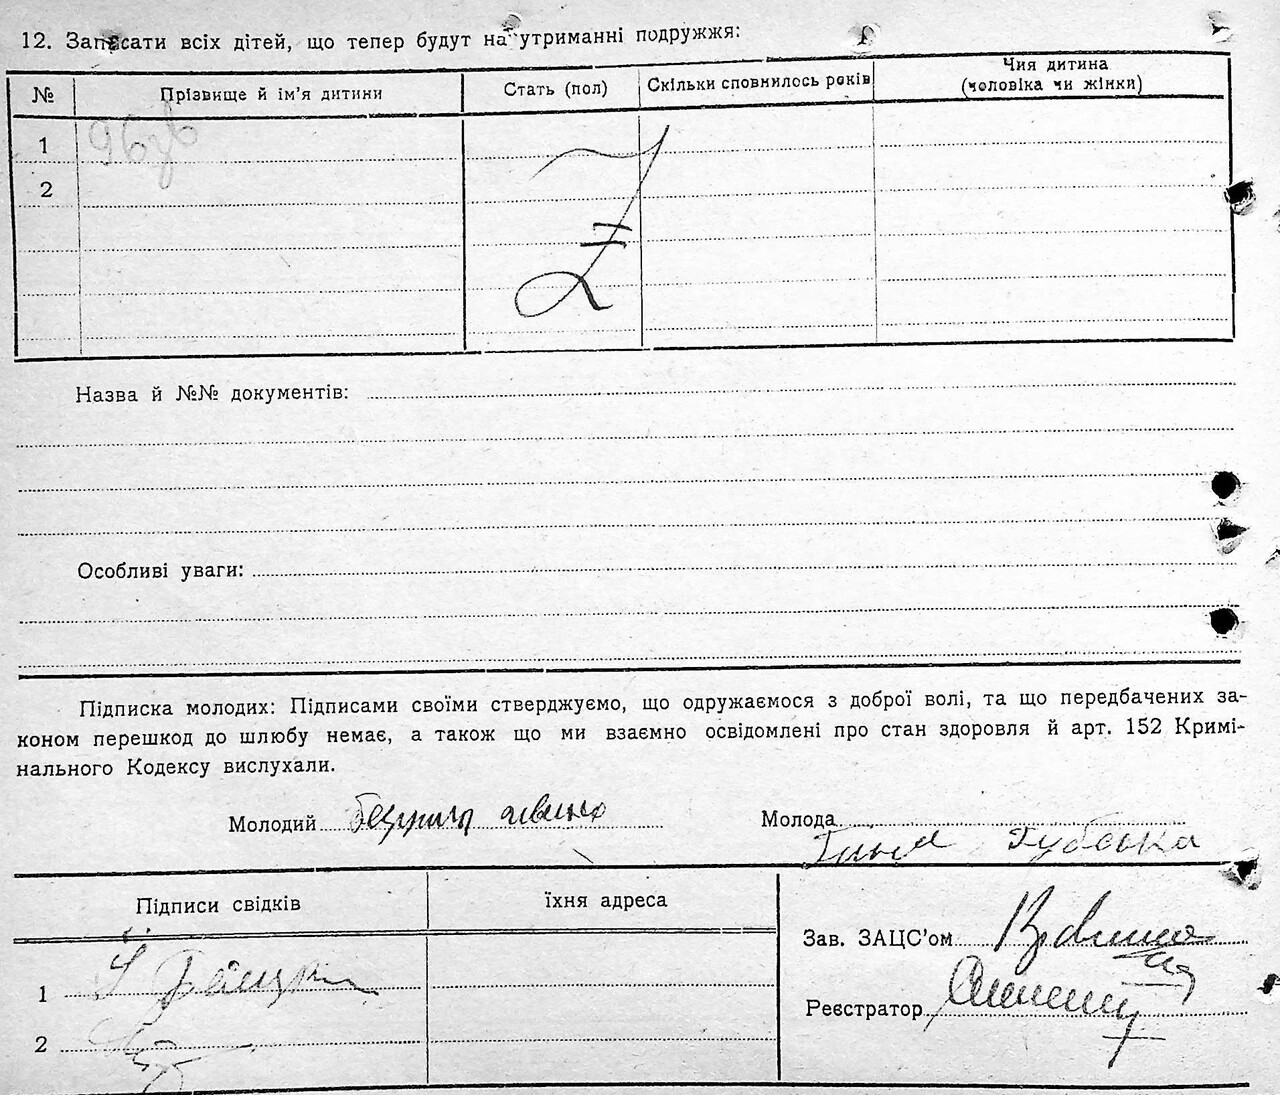 12. Записати всіх дітей, що тепер будут на утриманні подружжя:
№ Прізвище й ім'я дитини Стать (пол) Скільки сповнилось років Чия дитина
(чоловіка чи жінки)
1
2
Назва й №№ документів:
Особливі уваги:
Підписка молодих: Підписами своїми стверджуємо, що одружаємося з доброї волі, та що передбачених за-
коном перешкод до шлюбу немає, а також що ми взаємно освідомлені про стан здоровля й арт. 152 Кримі-
нального Кодексу вислухали.
Молодий
Молода
Губська
Підписи свідків їхня адреса
Зав. ЗАЦС'ом
1
Реєстратор
2